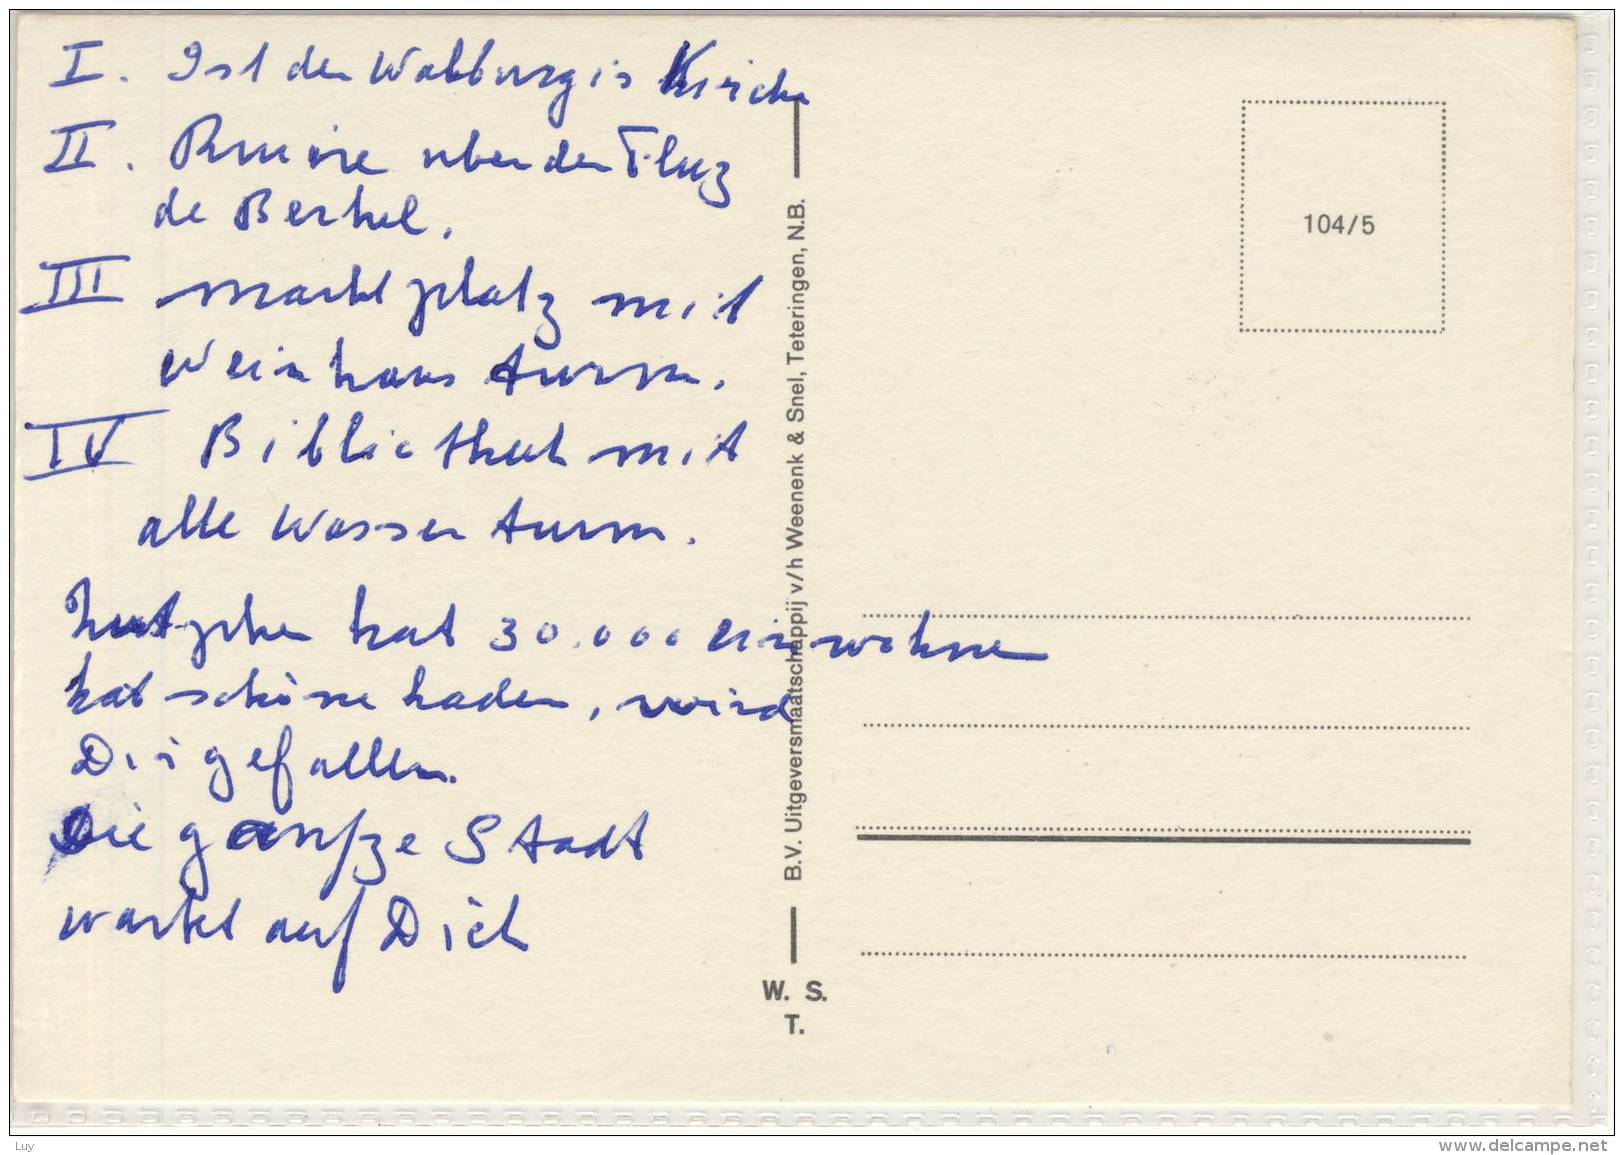 I. Ist den Walburgis Kirche
II. Ruine uber den Fluz
de Berkel.
III Marktplatz mit
Weinhaus turm.
IV Bibliothek mit
alle Wasser turm.
Zutphen hat 30.000 einwohner
hat schöne laden, wird
Dir gefallen.
Die ganze Stadt
wartet auf Dich
B.V. Uitgeversmaatschappij v/h Weenenk & Snel, Teteringen, N.B.
W. S.
T.
104/5
Luy
www.delcampe.net